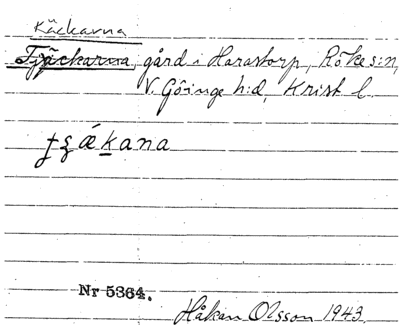 Käckarna
Tjäckarna, gård i Harastorp, Röke s:n,
V. Göinge h:d, Krist l.
Nr 5364.
Håkan Olsson 1943.